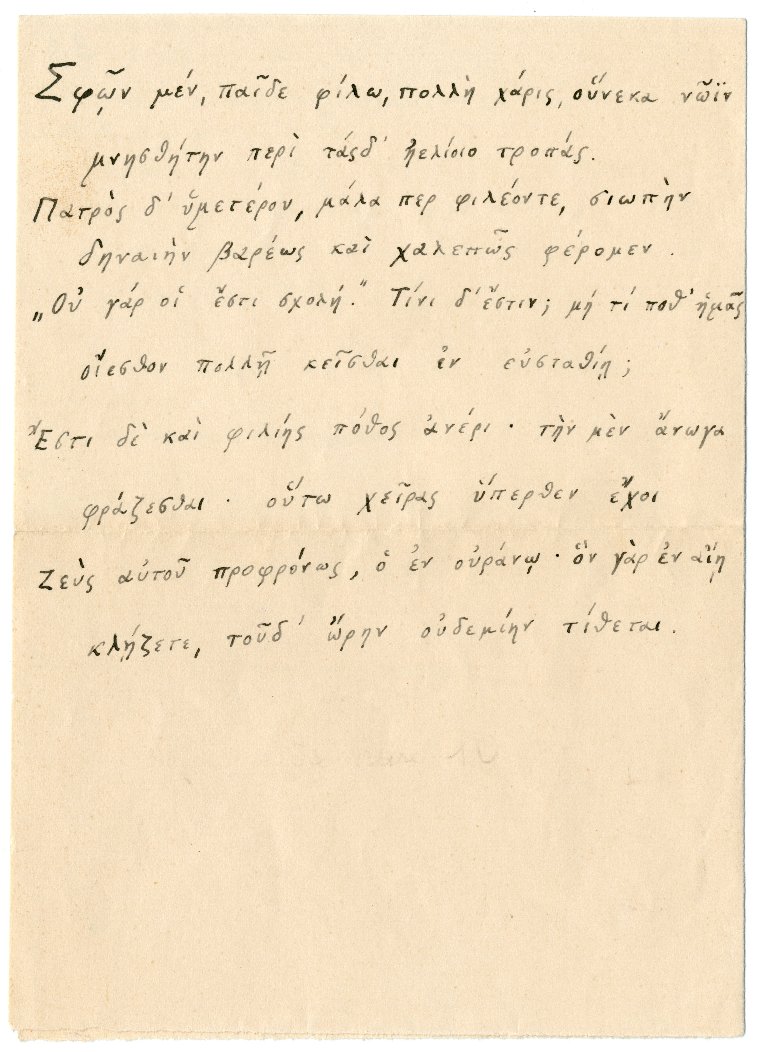 Σφῷν μέν, παῖδε φίλω, πολλὴ χάρις, οὕνεκα νῶϊν
μνησθήτην περὶ τάςδ' ἠελίοιο τροπάς.
Πατρὸς δ' ὑμετέρου, μάλα περ φιλέοντε, σιωπὴν
δηναιὴν βαρέως καὶ χαλεπῶς φέρομεν.
„Οὐ γάρ οἱ ἔστι σχολή.“ Τίνι δ' ἔστιν; μή τί ποθ' ἡμᾶς
οἴεσθον πολλῇ κεῖσθαι ἐν εὐσταθίῃ;
Ἔστι δὲ καὶ φιλίης πόθος ἀνέρι· τὴν μὲν ἄνωγα
φράζεσθαι· οὕτω χεῖρας ὕπερθεν ἔχοι
Ζεὺς αὐτοῦ προφρόνως, ὁ ἐν οὐράνῳ· ὃν γὰρ ἐν αἴῃ
κλῄζετε, τοῦδ' ὤρην οὐδεμίην τίθεται.